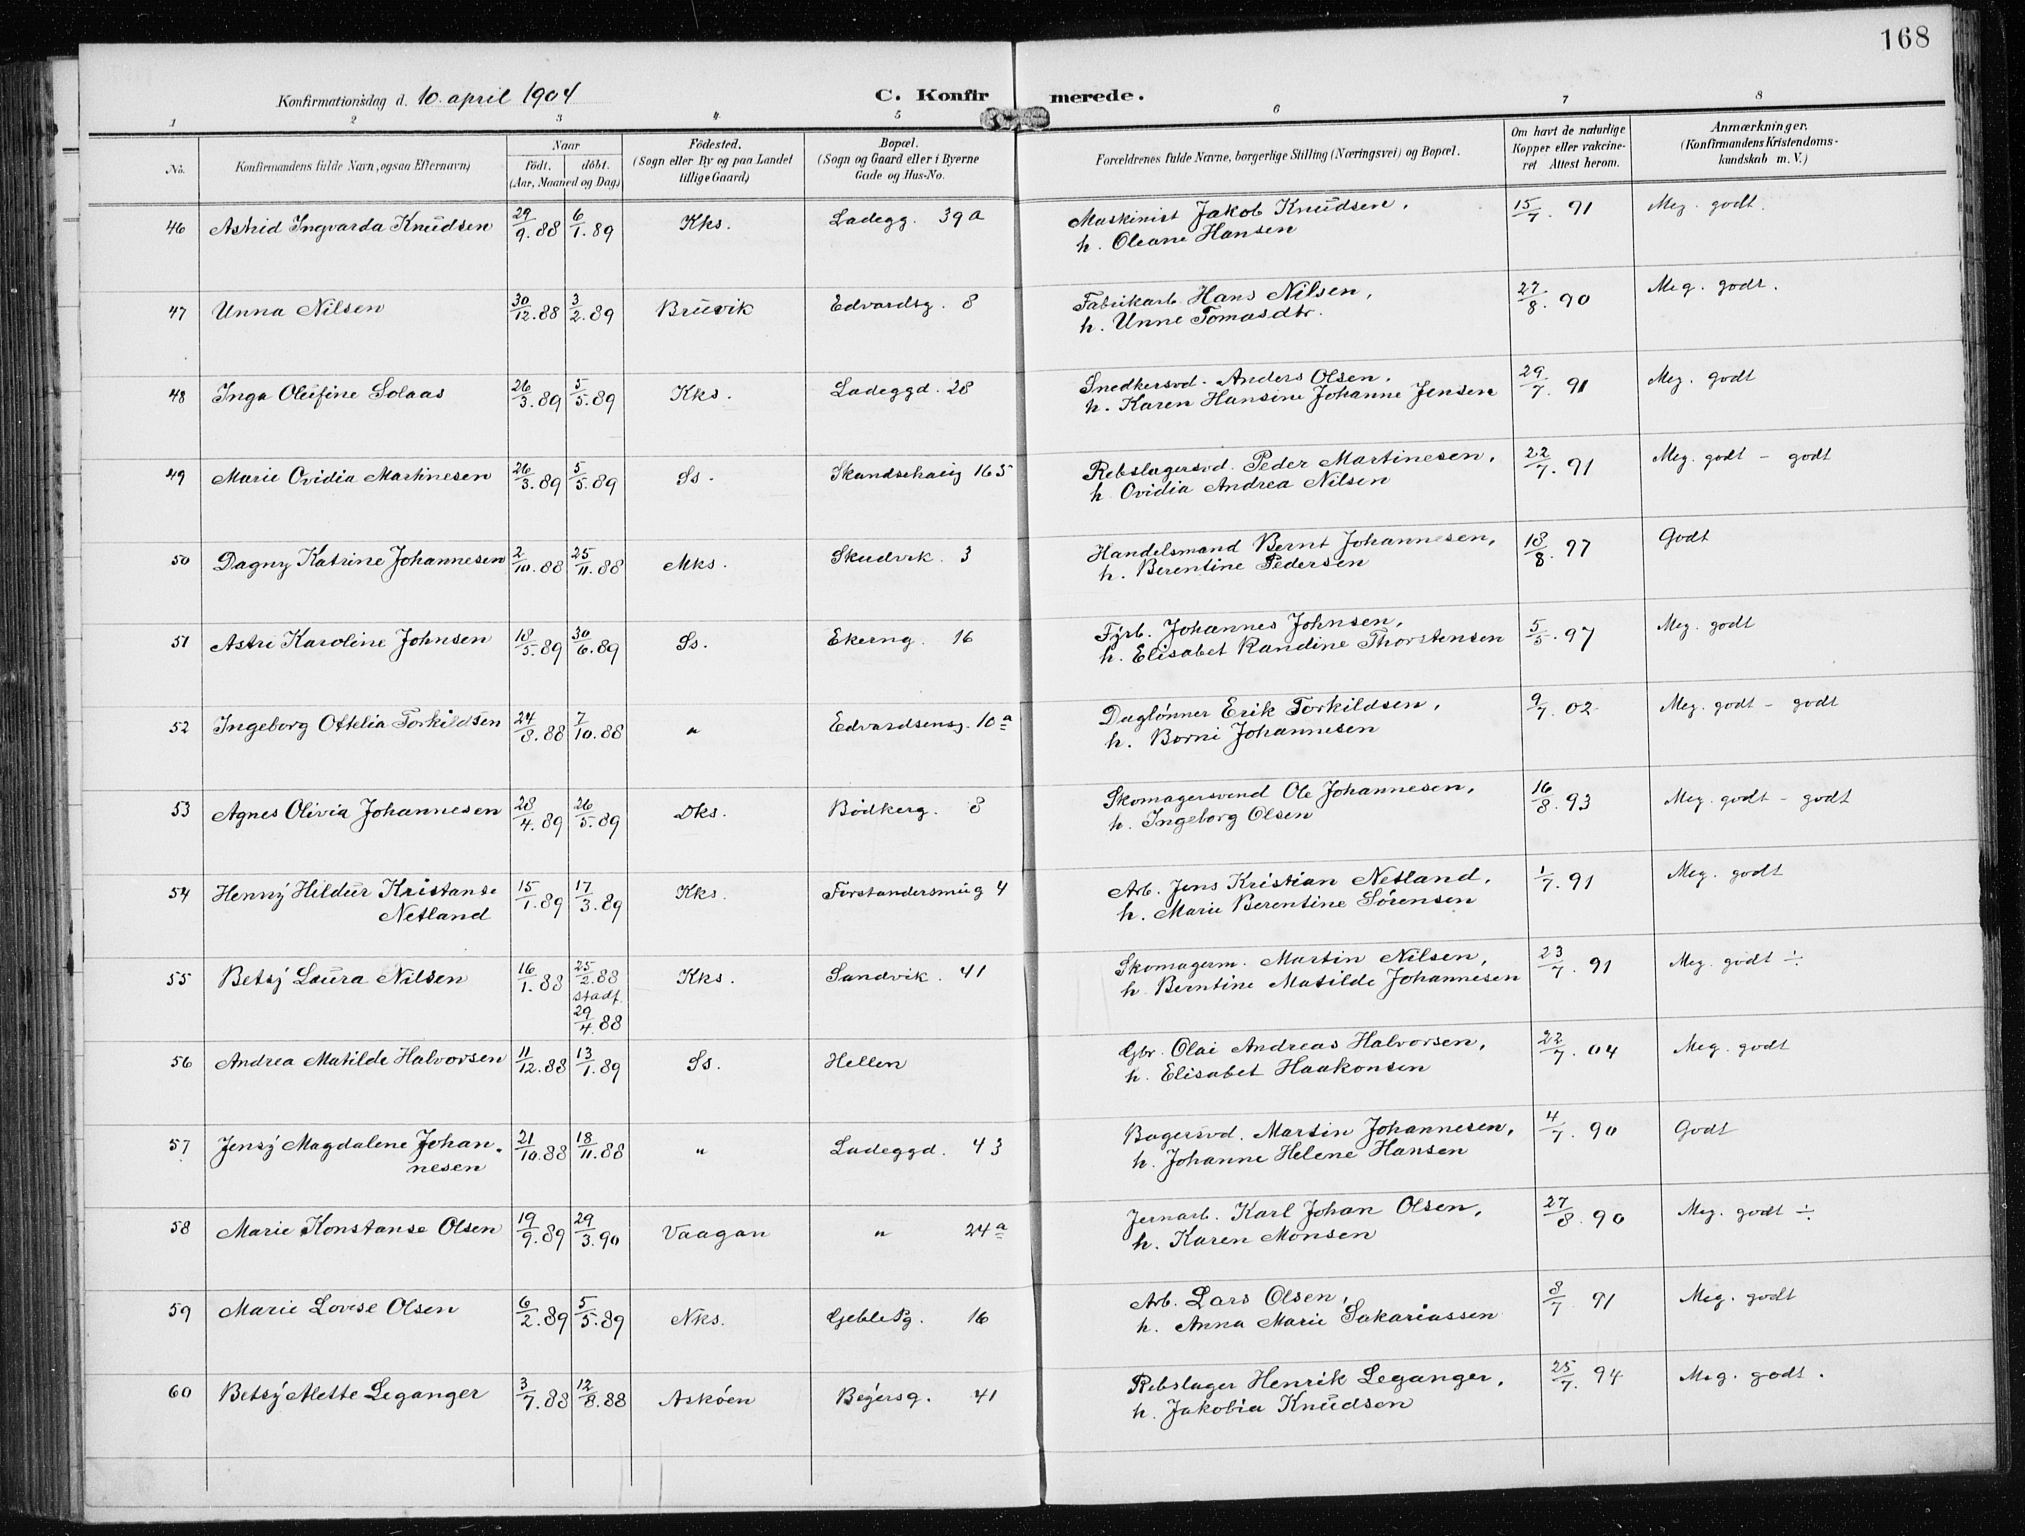 168
Konfirmationsdag d. 10. april 1904 C. Konfirmerede.
1 2 3 4 5 6 7 8
No. Konfirmandens fulde Navn, ogsaa Efternavn) Naar födt. döbt. (Aar, Maaned og Dag) Födested. (Sogn eller By og paa Landet tillige Gaard) Bopæl. (Sogn og Gaard eller i Byerne Gade og Hus-No. Forældrenes fulde Navne, borgerlige Stilling (Næringsvei) og Bopæl. Om havt de naturlige Kopper eller vakcineret Attest herom. Anmærkninger. (Konfirmandens Kristendomskundskab m. V.)
46 Astrid Ingvarda Knudsen 29/9.88 6/1.89 Kks. Ladegg. 39a Maskinist Jakob Knudsen, 15/7.91 Meg. godt.
h. Oleane Hansen
47 Unna Nilsen 30/12.88 3/2.89 Bruvik Edvardsg. 8 Fabrikarb. Hans Nilsen, 27/8.90 Meg. godt.
h. Unne Tomasdtr.
48 Inga Oleifine Solaas 26/3.89 5/5.89 Kks. Ladeggd. 28 Snedkersvd. Anders Olsen, 29/7.91 Meg. godt
h. Karen Hansine Johanne Jensen
49 Marie Ovidia Martinesen 26/3.89 5/5.89 Ss. 165 Rebslagersvd. Peder Martinesen, 22/7.91 Meg. godt - godt
h. Ovidia Andrea Nilsen
50 Dagny Katrine Johannesen 2/10.88 25/11.88 Mks. Skudvik. 3 Handelsmand Bernt Johannesen, 18/8.97 Godt
h. Berentine Pedersen
51 Astri Karoline Johnsen 18/5.89 30/6.89 Ss. Ekerng. 16 Fyrb. Johannes Johnsen, 5/5.97 Meg. godt
h. Elisabet Randine Thorstensen
52 Ingeborg Othelia Torkildsen 24/8.88 7/10.88 " Edvardseng. 10a Daglönner Erik Torkildsen, 9/7.02 Meg. godt - godt
h. Borni Johannesen
53 Agnes Olivia Johannesen 28/4.89 26/5.89 Dks. Bödkerg. 8 Skomagersvend Ole Johannesen, 16/8.93 Meg. godt - godt
h. Ingeborg Olsen
54 Henny Hildur Kristanse 15/1.89 17/3.89 Kks. Forstandersmug 4 Arb. Jens Kristian Netland, 1/7.91 Meg. godt
Netland h. Marie Berentine Sörensen
55 Betsy Laura Nilsen 16/1.88 25/2.88 Kks. Sandvik. 41 Skomagerm. Martin Nilsen, 23/7.91 Meg. godt ÷
stadf. 29/4.88 h. Berntine Matilde Johannesen
56 Andrea Matilde Halvorsen 11/12.88 13/1.89 Ss. Hellen Gbr. Olai Andreas Halvorsen, 22/7.04 Meg. godt
h. Elisabet Haakonsen
57 Jensy Magdalene Johan- 21/10.88 18/11.88 " Ladeggd. 43 Bagersvd. Martin Johannesen, 4/7.90 Godt
nesen h. Johanne Helene Hansen
58 Marie Konstanse Olsen 19/9.89 29/3.90 Vaagan " 24a Jernarb. Karl Johan Olsen, 27/8.90 Meg. godt ÷
h. Karen Monsen
59 Marie Lovise Olsen 6/2.89 5/5.89 Nks. 16 Arb. Lars Olsen, 8/7.91 Meg. godt
h. Anna Marie Sakariassen
60 Betsy Mette Leganger 3/7.88 12/8.88 Asköen Beyersg. 41 Rebslager Henrik Leganger, 25/7.94 Meg. godt.
h. Jakobia Knudsen